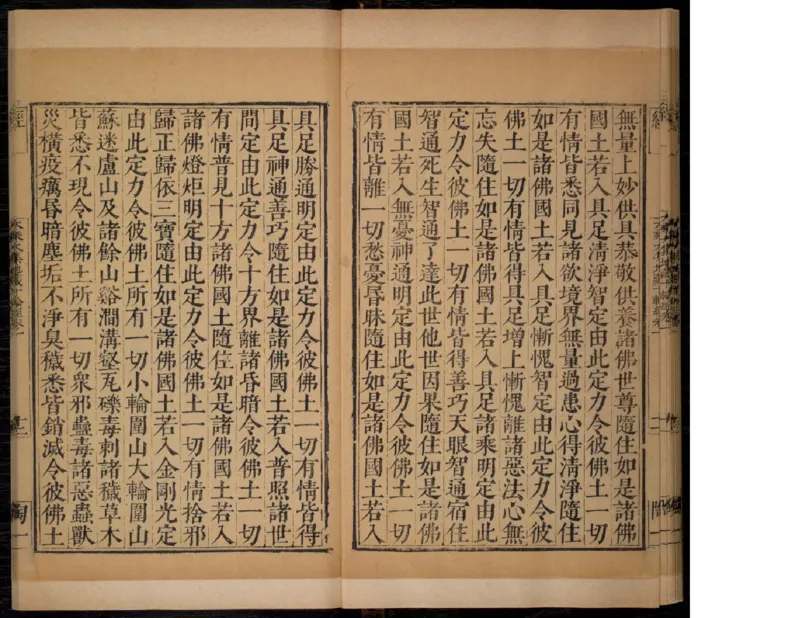 無量上妙供具恭敬供養諸佛世尊隨住如是諸佛
國土若入具足清淨智定由此定力令彼佛土一切
有情皆悉同見諸欲境界無量過患心得清淨隨住
如是諸佛國土若入具足慚愧智定由此定力令彼
佛土一切有情皆得具足增上慚愧離諸惡法心無
忘失隨住如是諸佛國土若入具足諸乘明定由此
定力令彼佛土一切有情皆得善巧天眼智通宿住
智通死生智通了達此世他世因果隨住如是諸佛
國土若入無憂神通明定由此定力令彼佛土一切
有情皆離一切愁憂昏昧隨住如是諸佛國土若入
具足勝通明定由此定力令彼佛土一切有情皆得
具足神通善巧隨住如是諸佛國土若入普照諸世
間定由此定力令十方界離諸昏暗令彼佛土一切
有情普見十方諸佛國土隨住如是諸佛國土若入
諸佛燈炬明定由此定力令彼佛土一切有情捨邪
歸正歸依三寶隨住如是諸佛國土若入金剛光定
由此定力令彼佛土所有一切小輪圍山大輪圍山
蘇迷盧山及諸餘山谿澗溝壑瓦礫毒刺諸穢草木
皆悉不現令彼佛土所有一切眾邪蠱毒諸惡蟲獸
災橫疫癘昏暗塵垢不淨臭穢悉皆銷滅令彼佛土